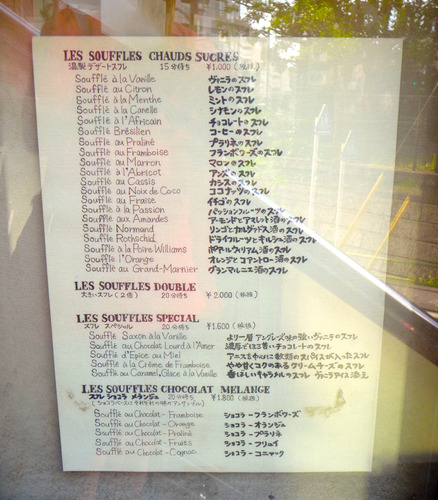 LES SOUFFLES CHAUDS SUCRES
温製デザートスフレ 15分待ち ¥1,000 (税抜)
Soufflé à la Vanille ヴァニラのスフレ
Soufflé au Citron レモンのスフレ
Soufflé à la Menthe ミントのスフレ
Soufflé à la Canelle シナモンのスフレ
Soufflé à l'Africain チョコレートのスフレ
Soufflé Brésilien コーヒーのスフレ
Soufflé au Praliné プラリネのスフレ
Soufflé au Framboise フランボワーズのスフレ
Soufflé au Marron マロンのスフレ
Soufflé à l'Abricot アンズのスフレ
Soufflé au Cassis カシスのスフレ
Soufflé au Noix de Coco ココナッツのスフレ
Soufflé au Fraise イチゴのスフレ
Soufflé à la Passion パッションフルーツのスフレ
Soufflé aux Amandes アーモンドとアマレット酒のスフレ
Soufflé Normand リンゴとカルヴァドス酒のスフレ
Soufflé Rothschild ドライフルーツとキルシュ酒のスフレ
Soufflé à la Poire Williams ポワールウィリアム酒のスフレ
Soufflé l'Orange オレンジとコアントロー酒のスフレ
Soufflé au Grand-Marnier グランマルニエ酒のスフレ
LES SOUFFLES DOUBLE
大きいスフレ(2倍) 20分待ち ¥2,000 (税抜)
LES SOUFFLES SPECIAL
スフレ スペシャル 20分待ち ¥1,600 (税抜)
Soufflé Saxon à la Vanille より一層アングレーズ味の強いヴァニラのスフレ
Soufflé au Chocolat Lourd à l'Amer 濃厚でほろ苦いチョコレートのスフレ
Soufflé d'Epice au Miel アニスを中心に数種類のスパイスが入ったスフレ
Soufflé à la Crème de Framboise やや甘くコクのあるクリームチーズのスフレ
Soufflé au Caramel, Glace à la Vanille 香ばしいキャラメルのスフレ ヴァニラアイス添え
LES SOUFFLES CHOCOLAT MELANGE
スフレ ショコラ メランジェ 20分待ち ¥1,800 (税抜)
(ショコラベースにそれぞれの味のアンサンブル)
Soufflé au Chocolat - Framboise ショコラ - フランボワーズ
Soufflé au Chocolat - Orange ショコラ - オランジュ
Soufflé au Chocolat - Praliné ショコラ - プラリネ
Soufflé au Chocolat - Fruits ショコラ - フリュイ
Soufflé au Chocolat - Cognac ショコラ - コニャック